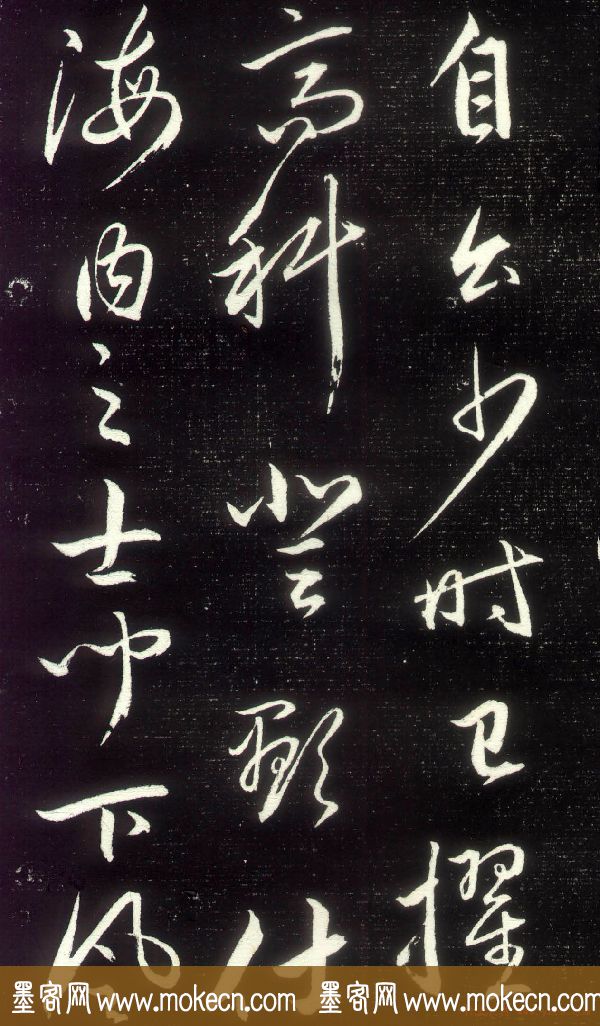 自公少时已擢
高科登顯仕
海内之士仰下风
墨客网 www.mokecn.com 墨客网 www.mokecn.com